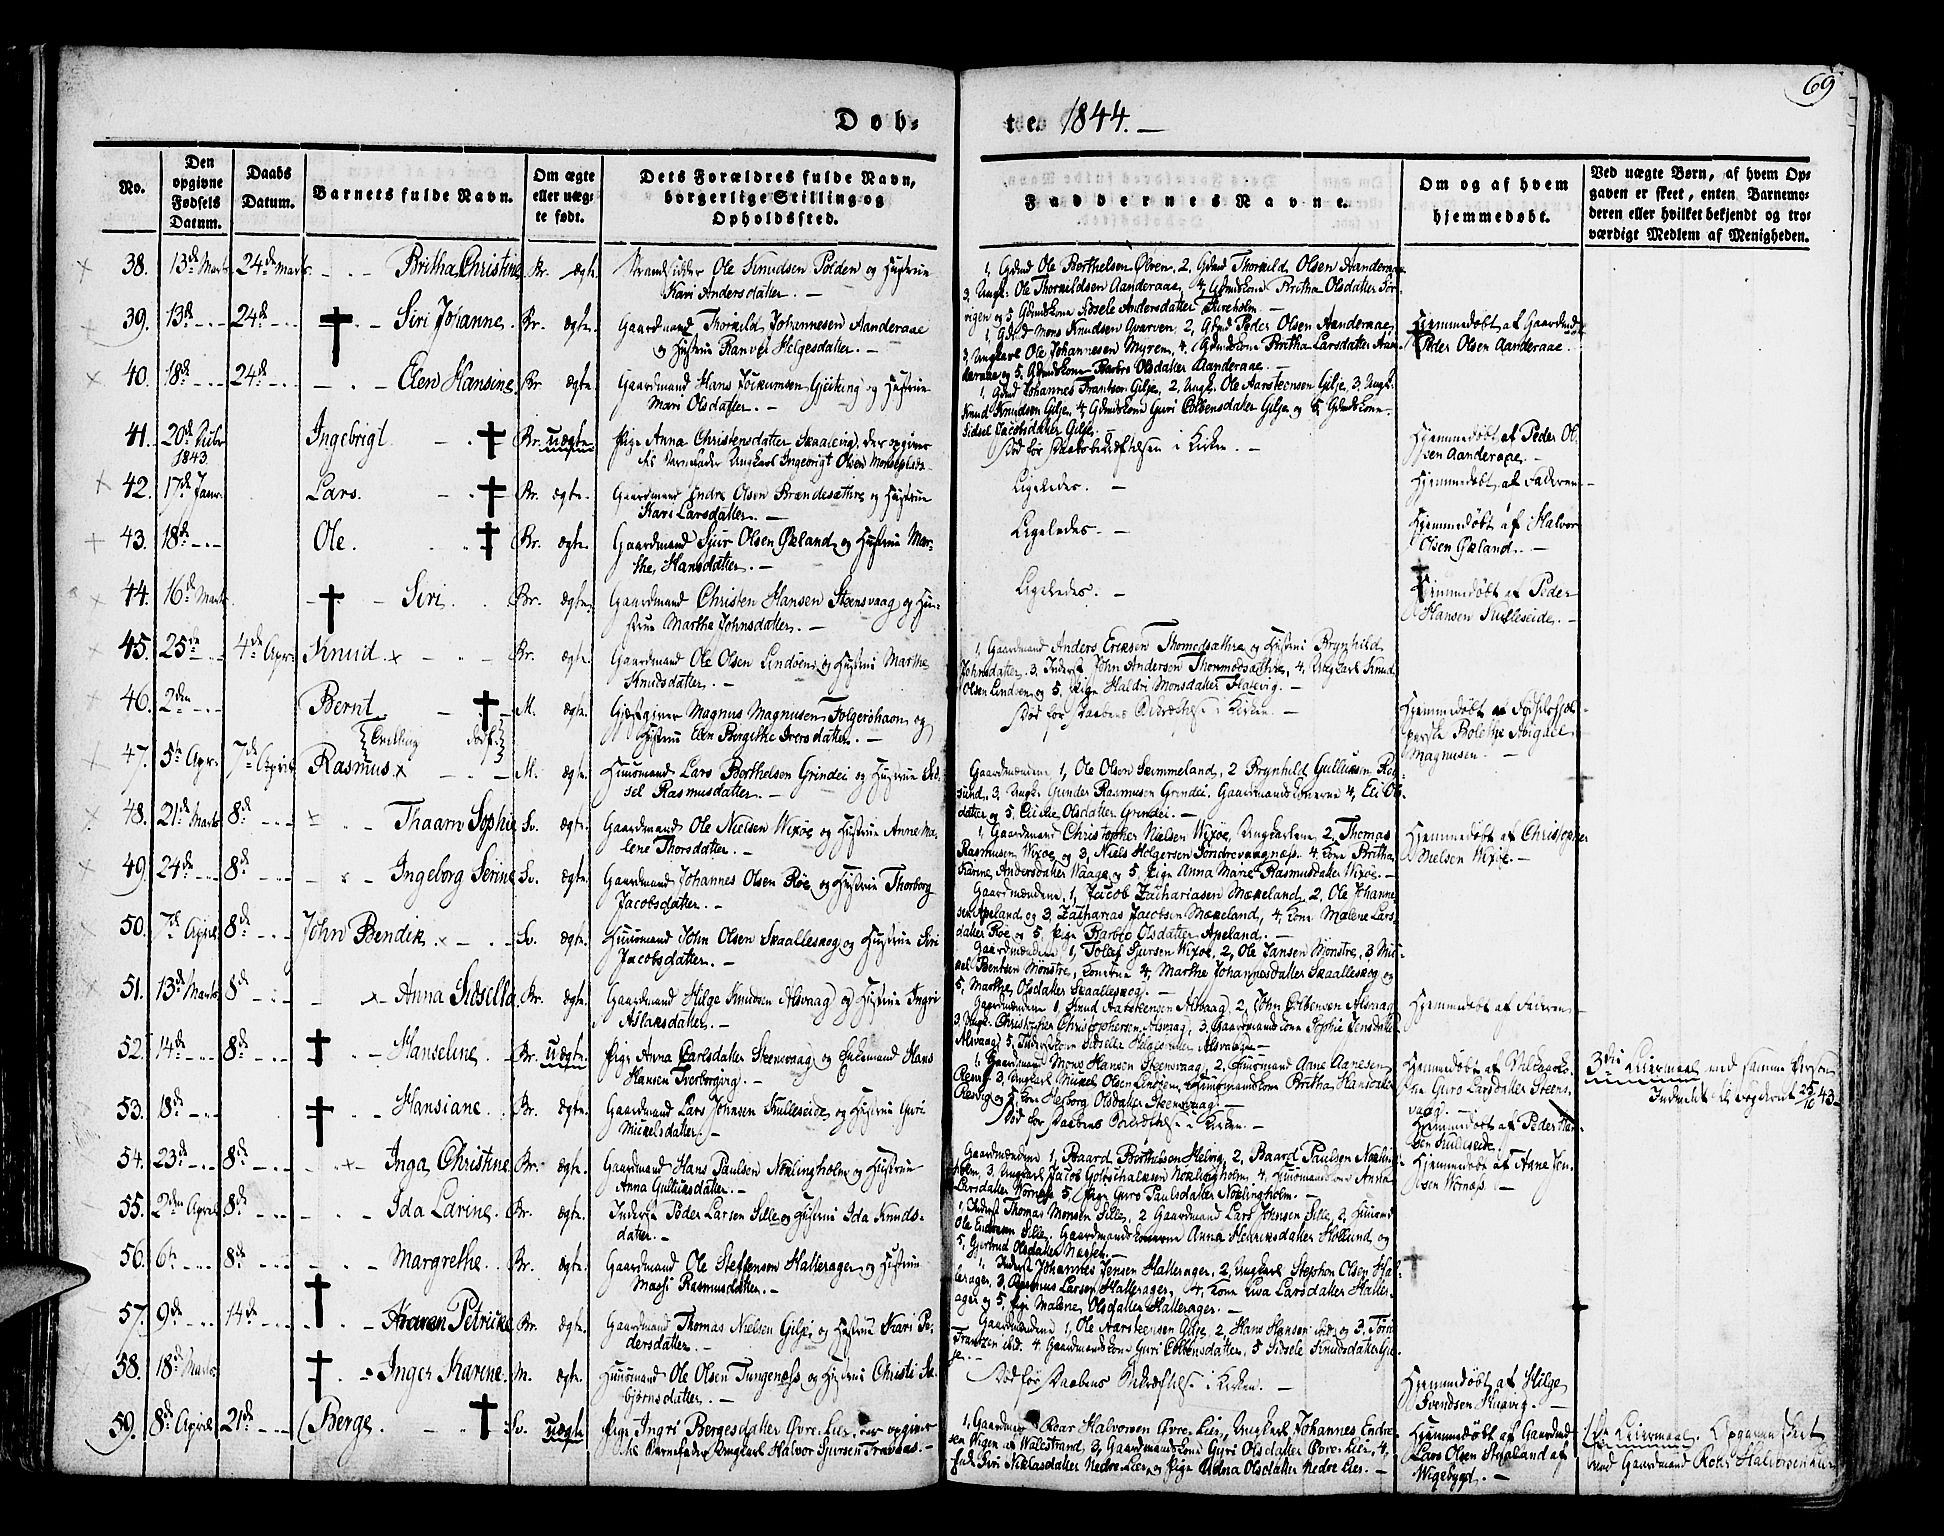 69
Døb- te. 1844. —
No.
Den opgivne Fødsels Datum.
Daabs Datum.
Barnets fulde Navn.
Om ægte eller uægte født.
Dets Forældres fulde Navn, borgerlige Stilling og Opholdssted.
Faddernes Navne.
Om og af hvem hjemmedøbt.
Ved uægte Børn, af hvem Opgaven er skeet, enten Barnemoderen eller hvilket bekjendt og troværdigt Medlem af Menigheden.
38. 13de Marts 24de Marts Britha Christine Br. ægte. Strandsidder Ole Knudsen Polden og Hustrue
Kari Andersdatter. —
1, Gdmd Ole Berthelsen Øvren, 2, Gdmd Thorkild Olsen Aanderaae
3, Ungk: Ole Thorkildsen Aanderaae, 4, Gdmdskone Britha Olsdatter
og 5 Gdmdskone Sidsele Andersdatter
39. 13de 24de Siri Johanne. Br. ægte. Gaardmand Thorkild Johannesen Aanderaae
og Hustrue Ranvei Helgesdatter. —
1, Gdmd Mons Knudsen Qvarven, 2, Gdmd Peder Olsen Aanderaae,
3, Ungkarl Ole Johannesen Myrem, 4, Gdmdskone Britha Larsdatter Aan-
deraae og 5, Gdmdskone Barbro Olsdatter Aanderaae. —
Hjemmedøbt af Gaardmd
Peder Olsen Aanderaae.
40. 18de 24de Elen Hansine. Br. ægte. Gaardmand Hans og Hustrue
Mari Olsdatter. —
1, Gdmd Johannes Frantsen Gilje, 2, Ungk. Ole Aarsteensen Gilje, 3, Ungk.
Knud Knudsen Gilje, 4, Gdmdskone Guri Colbensdatter Gilje og 5, Gdmdskone
Sidsel Jacobsdatter Gilje. —
41. 20de 1843. Ingebrigt. Br. uægte Pige Anna Christensdatter Skaalevig, der opgiver
til Barnefader Ungkarl Ingebrigt Olsen
Død før Daabsbekræftelsen i Kirken. —
Hjemmedøbt af Peder Ol-
sen Aanderaae. —
42. 17de Janr. Lars. Br. ægte. Gaardmand Endre Olsen Brandesæthre og Hustrue
Kari Larsdatter. —
Ligeledes. —
Hjemmedøbt af Faderen. —
43. 18de Ole. Br. ægte. Gaardmand Sjur Olsen Økland og Hustrue Mar-
the Hansdatter. —
Ligeledes. —
Hjemmedøbt af Halvor
Olsen Økland. —
44. 16de Marts Siri. Br. ægte. Gaardmand Christen Hansen Steensvaag og Hu-
strue Martha Johnsdatter. —
Ligeledes. —
Hjemmedøbt af Peder
Hansen Kulleseide. —
45. 25de 4de Apr. Knud. Br. ægte. Gaardmand Ole Olsen Lindøen og Hustrue Marthe
Knudsdatter. —
1, Gaardmand Anders Ericsen Thormodsæthre og Hustrue Brynhild
Johnsdatter. 3, Inderst John Andersen Thormodsæthre, 4, Ungkarl Knud
Olsen Lindøen og 5, Pige Haldri Monsdatter Hatlevig. —
46. 2den Bernt M. ægte. Gjæstgiver Magnus Magnusen Folgerøhavn og
Tvilling
Hustrue Elen Bergithe Iversdatter. —
Død før Daabens Bekræftelse i Kirken. —
Hjemmedøbt af
Bolethe Abigael
Magnusen. —
47. 5te Apr. 7de April Rasmus M. ægte. Huusmand Lars Berthelsen Grindei og Hustrue Sid-
sel Rasmusdatter. —
Gaardmændene 1, Ole Olsen Skimmeland, 2 Brynhild Gulliksen
3, Ungk. Gunder Rasmusen Grindei. Gaardmandskonerne 4, Eli Ols-
datter og 5, Olsdatter Grindei. —
48. 21de Marts 8de Thaarn Sophie Sv. ægte. Gaardmand Ole Nielsen Wixøe og Hustrue Anne Ma-
lene Thorsdatter. —
1, Gaardmand Christopher Nielsen Wixøe, Ungkarlene 2, Thomas
Rasmusen Wixøe og 3, Niels Holgersen Søndrevaagnæss. 4, Kone Britha
Karine Andersdatter Vaage og 5, Pige Anna Marie Rasmusdatter Wixøe. —
Hjemmedøbt af Christopher
Nielsen Wixøe. —
49. 24de 8de Ingeborg Serine Sv. ægte. Gaardmand Johannes Olsen Røe og Hustrue Thorborg
Jacobsdatter. —
Gaardmændene, 1, Jacob Zachariasen Mækeland, 2, Ole Johanne-
sen Apeland og 3, Zacharias Jacobsen Mækeland, 4, Kone Malene Lars-
datter Røe og 5, Pige Barbro Olsdatter Apeland. —
50. 7de April 8de John Bendik Sv. ægte. Huusmand John Olsen Skaalleskog og Hustrue Siri
Jacobsdatter. —
Gaardmændene, 1, Tollef Sjursen Wixøe, 2, Ole Jansen Mønstre, 3 Mi-
kel Bentsen Mønstre, Konerne 4, Marthe Johannesdatter Skaalleskog og
5, Marthe Olsdatter Skaalleskog. —
51. 13de Marts 8de Anna Sidsella Br. ægte. Gaardmand Helge Knudsen Alsvaag og Hustrue Ingri
Aslaksdatter. —
Gaardmændene 1, Knud Aarsteensen Alsvaag, 2, John Colbensen Alsvaag
3, Ungk. Christopher Christophersen Alsvaag, 3, Gaardmandskone Sophie Jensdatter
Alsvaag 5, Inderstkone Sidselle Helgesdatter Alsvaag. —
Hjemmedøbt af Faderen —
52. 14de 8de Hanseline. Br. uægte. Pige Anna Carlsdatter Steensvaag og Enkemand Hans
Hansen Tverborgvig. —
1, Gaardmand Mons Hansen Steensvaag, 2, Huusmand Arne Arnesen
Røsvig 3, Ungkarl Mikkel Olsen Lindøen, Huusmandskone Britha Hansdatter
Røsvig og 5, Kone Herborg Olsdatter Steensvaag. —
Hjemmedøbt af
Guro Larsdatter Steens-
vaag. —
3die Leiermaal med samme Person
Indmeldt til Fogderiet 25/10 43. —
53. 18de Hansiane. Br. ægte. Gaardmand Lars Johnsen Kulleseide og Hustrue Guri
Mikelsdatter. —
Død før Daabens Bekræftelse i Kirken. —
Hjemmedøbt af Peder Han-
sen Kulleseide. —
54. 23de 8de Inga Christine. Br. ægte. Gaardmand Hans Paulsen Nøklingholm og Hustrue
Anna Gulliksdatter. —
Gaardmændene 1, Baard Berthelsen Helvig, 2, Baard Paulsen Nøkling-
holm 3, Ungkarl Jacob Gotschalksen Nøklingholm. 4, Huusmandskone Anna
Larsdatter Wornæss 5, Pige Guro Paulsdatter Nøklingholm. —
Hjemmedøbt af Anne Jon-
sen Wornæss. —
55. 2den April 8de Ida Larine. Br. ægte. Inderst Peder Larsen Sille og Hustrue Ida Knuds-
datter. —
1, Inderst Thomas Monsen Sille, 2 Gaardmand Lars Johnsen Sille, 3, Huusmd
Ole Endresen Sille, Gaardmandskonerne Anna Henriksdatter Hollund og
5, Gjertrud Olsdatter
56. 6te 8de Margrethe. Br. ægte. Gaardmand Ole Steffensen Hallerager og Hustrue
Masji Rasmusdatter. —
1, Inderst Johannes Jensen Hallerager, 2, Ungkarl Stephen Olsen Hal-
lerager, 3, Rasmus Larsen Hallerager, 4, Kone Eiva Larsdatter Haller-
ager og 5, Pige Malene Olsdatter Hallerager. —
57. 9de 14de Karen Petrike Br. ægte. Gaardmand Thomas Nielsen Gilje og Hustrue Kari Pe-
dersdatter. —
Gaardmændene 1, Ole Aarsteensen Gilje, 2, Hans Hansen ibd. og 3, Tørris
Frantzen ibid. 4, Gaardmandskone Guri Colbensdatter, 5 Sidsele Knudsdatter Gil-
je. —
58. 18de Marts Inger Karine. M. ægte. Huusmand Ole Olsen Tungenæss og Hustrue Christi Se-
bjørnsdatter. —
Død før Daabens Bekræftelse i Kirken. —
Hjemmedøbt af Helge
Svendsen
59. 8de April 21de Berge. Sv. uægte. Pige Ingri Bergesdatter Øvre-Lier, der opgiver
til Barnefader Ungkarl Halvor Sjursen
1, Gaardmand Roar Halvorsen Øvre-Lier, Ungkarl Johannes Endre-
sen Vigen af Wallestrand, 3, Gaardmandskone Guri Olsdatter Øvre-Lier, 4,
Pige Siri Niklasdatter Nedre Lier og Pige Udna Olsdatter Nedre Lier. —
Hjemmedøbt af Gaardmd
Lars Olsen Straland af
Wigebygd. —
1ste Leiermaal. Opgaven skeet
ved Gaardmand Roar Halvorsen Lier